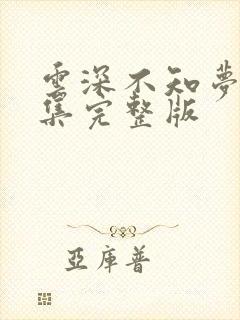 雲深不知夢
集完整版
亞庫普